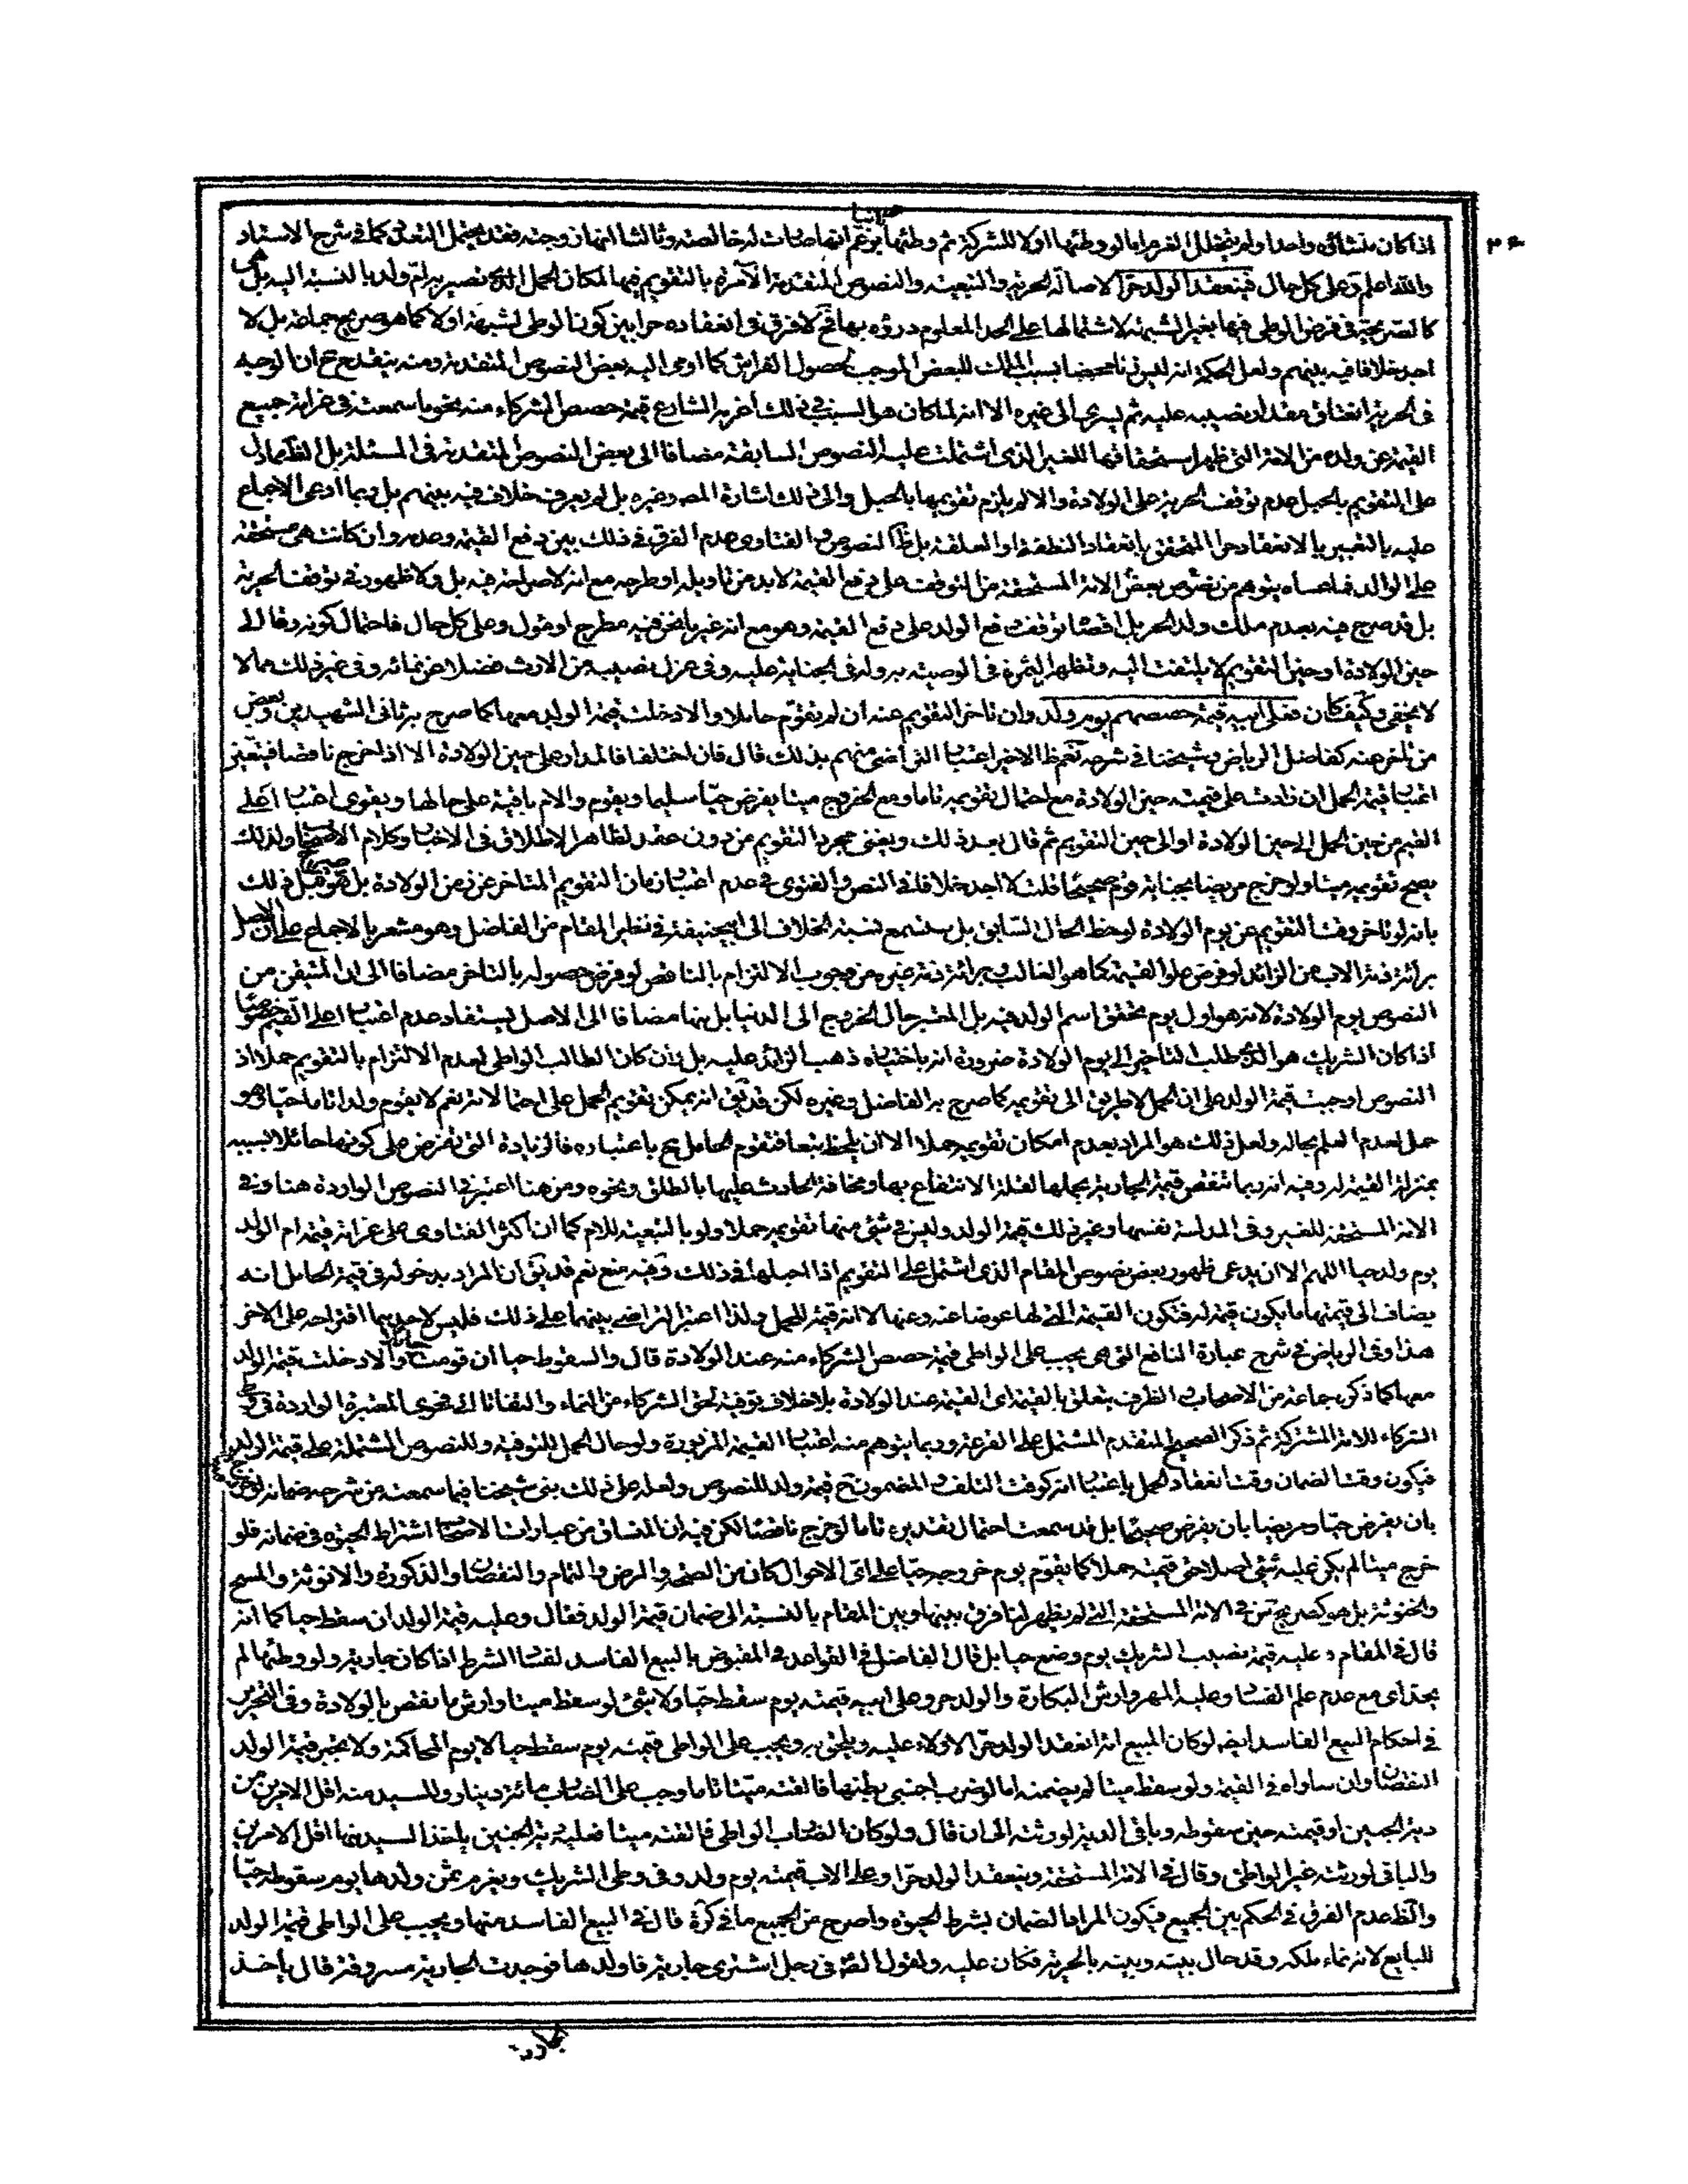 اذا كان منشائه واحدا ولم يتخلل الغرم اما لو وطئها اولا للشركة ثم وطئها ثانيا بزعم انها صارت له خالصة وثالثا انها زوجته فقد يحتمل التعدد كما في شرح الاستاد
والله اعلم وعلى كل حال فينعقد الولد حرا لاصالة الحرية والتبعية والنصوص المتقدمة الآمرة بالتقويم فيها لمكان الحمل الذي تصير به ام ولد بالنسبة اليه بل هى
كالصريحة في فرض الوطى فيها بغير الشبهة لاشتمالها على الحد المعلوم درؤه بها فح لا فرق في انعقاده حرا بين كون الوطى لشبهة اولا كما هو صريح جماعة بل لا
اجد خلافا فيه بينهم ولعل الحكمة انه ليس زنا محضا بسبب الملك للبعض الموجب لحصول الفراش كما اومى اليه بعض النصوص المتقدمة ومنه ينقدح ح ان الوجه
في الحرية انعتاق مقدار نصيبه عليه ثم يسرى الى غيره الا انه لما كان هو السبب في ذلك اغرمه الشارع قيمة حصص الشركاء منه نحو ما سمعته في غرامة جميع
القيمة عن ولده من الامة التي ظهر استحقاقها للغير الذي اشتملت عليه النصوص السابقة مضافا الى بعض النصوص المتقدمة في المسئلة بل الظ مما دل
على التقويم بالحبل عدم توقف الحرية على الولادة والا لم يلزم تقويمها بالحبل والى ذلك اشارة المص وغيره بل لم يعرف خلاف فيه بينهم بل ربما ادعى الاجماع
عليه بالتعبير بالانعقاد حرا المتحقق بانعقاد النطفة او العلقة بل ظ النصوص والفتاوى عدم الفرق في ذلك بين دفع القيمة وعدمه وان كانت هى مستحقة
على الوالد فما عساه يتوهم من نصوص بعض الامة المستحقة من التوقف على دفع القيمة لابد من تاويله او طرحه مع انه لا صراحة فيه بل ولا ظهور في توقف الحرية
بل قد صرح فيه بعدم ملك ولد الحر بل اقصاه توقف دفع الولد على دفع القيمة وهو مع انه غير ما نحن فيه مطرح او مؤل وعلى كل حال فاحتمال كونه رقا الى
حين الولادة او حين التقويم لا يلتفت اليه وتظهر الثمرة في الوصية به وله في الجناية عليه وفي عزل نصيبه من الارث فضلا عن نمائه وفي غير ذلك مما لا
لا يخفى وكيف كان فعلى ابيه قيمة حصصهم يوم ولد وان تاخر التقويم عنه ان لم تقوم حاملا والا دخلت قيمة الولد معها كما صرح به ثاني الشهيدين وبعض
من تاخر عنه كفاضل الرياض وشيخنا في شرحه نعم ظ الاخير اعتبار التراضي منهم بذلك قال فان اختلفا فالمدار على حين الولادة الا اذا خرج ناقصا فيتعين
اعتبار قيمة الحمل ان زادت على قيمته حين الولادة مع احتمال تقويمه تاما ومع الخروج ميتا يفرض حيا سليما ويقوم والام باقية على حالها ويقوى اعتبار اعلى
القيم من حين الحمل الى حين الولادة او الى حين التقويم ثم قال بعد ذلك ويغنى مجرد التقويم من دون عقد لظاهر الاطلاق في الاخبار وكلام الاصحاب ولذلك
يصح تقويمه ميتا ولو خرج مريضا بجناية قوم صحيحا قلت لا اجد خلافا في النص والفتوى في عدم اعتبار زمان التقويم المتاخر عن زمن الولادة بل صرح هو قبل ذلك
بانه لو تاخر وقت التقويم عن يوم الولادة لوحظ الحال السابق بل ستسمع نسبة الخلاف الى ابيحنيفة في نظير المقام من الفاضل وهو مشعر بالاجماع على ان الاصل
برائة ذمة الاب من الزائد لو فرض علو القيمة كما هو الغالب وبرائة ذمة غيره من وجوب الالتزام بالناقص لو فرض حصوله بالتاخر مضافا الى ان المتيقن من
النصوص يوم الولادة لانه هو اول يوم تحقق اسم الولد فيه بل المعتبر حال الخروج الى الدنيا بل منها مضافا الى الاصل يستفاد عدم اعتبار اعلى القيم خصوصا
اذا كان الشريك هو الذي طلب التاخير الى يوم الولادة ضرورة انه باختياره ذهب الزائد عليه بل وان كان الطالب الواطى لعدم الالتزام بالتقويم حملا اذ
النصوص اوجبت قيمة الولد على ان الحمل لا طريق الى تقويمه كما صرح به الفاضل وغيره لكن قد يق انه يمكن تقويم الحمل على احتمالاته نعم لا يقوم ولدا تاما حيا وهو
حمل لعدم العلم بحاله ولعل ذلك هو المراد بعدم امكان تقويمه حملا الا ان يلحظ تبعا فتقوم الحامل ح باعتباره فالزيادة التي تفرض على كونها حائلا بسببه
بمنزلة القيمة له وفيه انه ربما تنقص قيمة الجارية بحملها لقلة الانتفاع بها ومخافة الحادث عليها بالطلق ونحوه ومن هنا اعتبر في النصوص الواردة هنا وفي
الامة المستحقة للغير وفي المدلسة نفسها وغير ذلك قيمة الولد وليس في شئ منها تقويمه حملا ولو بالتبعية للام كما ان اكثر الفتاوى على غرامة قيمة ام الولد
يوم ولد حيا اللهم الا ان يدعى ظهور بعض نصوص المقام الذي اشتمل على التقويم اذا احبلها في ذلك وفيه منع نعم قد يق ان المراد بدخوله في قيمة الحامل انه
يضاف الى قيمتها ما يكون قيمة له فتكون القيمة التي لها عوضا عنه وعنها لا انه قيمة للحمل ولذا اعتبر التراضي بينهما على ذلك فليس لاحدهما اقتراحه على الاخر
هذا وفي الرياض في شرح عبارة النافع التي هى يجب على الواطى قيمة حصص الشركاء منه عند الولادة قال والسقوط حيا ان قومت حائلا والا دخلت قيمة الولد
معها كما ذكره جماعة من الاصحاب الظرف يتعلق بالقيمة اى القيمة عند الولادة بلا خلاف توفية لحق الشركاء من النماء والتفاتا الى فحوى المعتبرة الواردة في وطى
الشركاء للامة المشتركة ثم ذكر الصحيح المتقدم المشتمل على القرعة وربما يتوهم منه اعتبار القيمة المزبورة ولو حال الحمل للتوفية وللنصوص المشتملة على قيمة الولد
فيكون وقت الضمان وقت انعقاد الحمل باعتبار انه كوقت التلف والمضمون ح قيمة ولد للنصوص ولعله على ذلك بنى شيخنا فيما سمعته من شرحه ضمانه لو خرج
بان يفرض حيا ومريضا بان يفرض صحيحا بل قد سمعت احتمال تقديره تاما لو خرج ناقصا لكن فيه ان المنساق من عبارات الاصحاب اشتراط الحيوة في ضمانه فلو
خرج ميتا لم يكن عليه شئ اصلا حتى قيمته حملا كما يقوم يوم خروجه حيا على اى الاحوال كان من الصحة والمرض والتمام والنقصان والذكورة والانوثة والمسح
والخنوثة بل هو كصريح س في الامة المستحقة التي لم يظهر لنا فرق بينها وبين المقام بالنسبة الى ضمان قيمة الولد فقال وعليه قيمة الولد ان سقط حيا كما انه
قال في المقام وعليه قيمة نصيب الشريك يوم وضع حيا بل قال الفاضل في القواعد في المقبوض بالبيع الفاسد لفساد الشرط اذا كان جارية ولو وطئها لم
يحد اى مع عدم علم الفساد وعليه المهر وارش البكارة والولد حر وعلى ابيه قيمته يوم سقط حيا ولا شئ لو سقط ميتا وارش ما نقص بالولادة وفي التحرير
في احكام البيع الفاسد ايضا لو كان المبيع امة انعقد الولد حرا لا ولاء عليه ويلحق به ويجب على الواطى قيمته يوم سقط حيا لا يوم المحاكمة ولا يجبر قيمة الولد
النقصان وان ساواه في القيمة ولو سقط ميتا لم يضمنه اما لو ضرب اجنبي بطنها فالقته ميتا تاما وجب على الضارب مائة دينار وللسيد منه اقل الامرين من
دية الجنين او قيمته حين سقوطه وباقي الدية لورثته الى ان قال ولو كان الضارب الواطى فالقته ميتا فعليه دية الجنين ياخذ السيد منها اقل الامرين
والباقي لورثته غير الواطى وقال في الامة المستحقة وينعقد الولد حرا وعلى الاب قيمته يوم ولد وفي وطى الشريك ويغرم ثمن ولدها يوم سقوطه حيا
والظ عدم الفرق في الحكم بين الجميع فيكون المراد الضمان بشرط الحيوة واصرح من الجميع ما في كرة قال في البيع الفاسد منها ويجب على الواطى قيمة الولد
للبايع لانه نماء ملكه وقد حال بينه وبينه بالحرية فكان عليه ولقول الص في رجل اشترى جارية فاولدها فوجدت الجارية مسروقة قال ياخذ